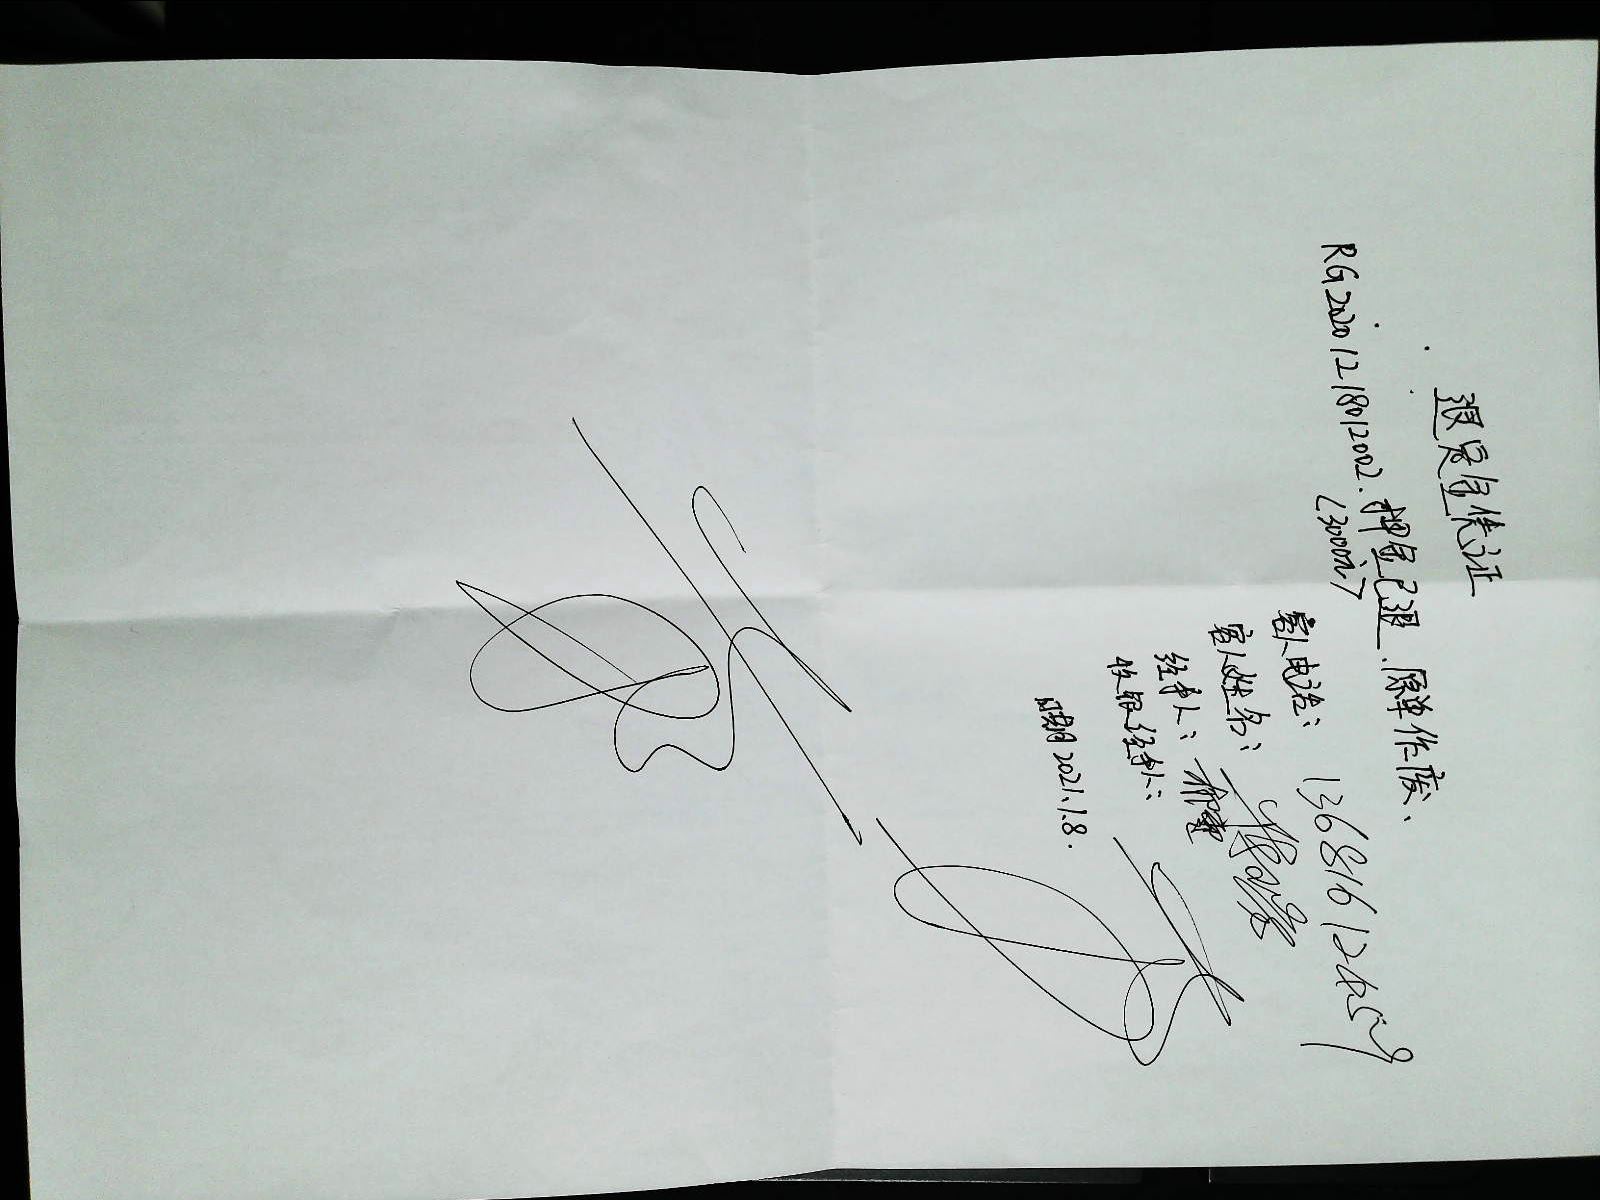 退定金凭证
RG20201218012002.押金已退.原单作废.
(3000元)
客人电话: 13681612459
客人姓名:
经手人: 柳
收银经手人:
日期 2021.1.8.